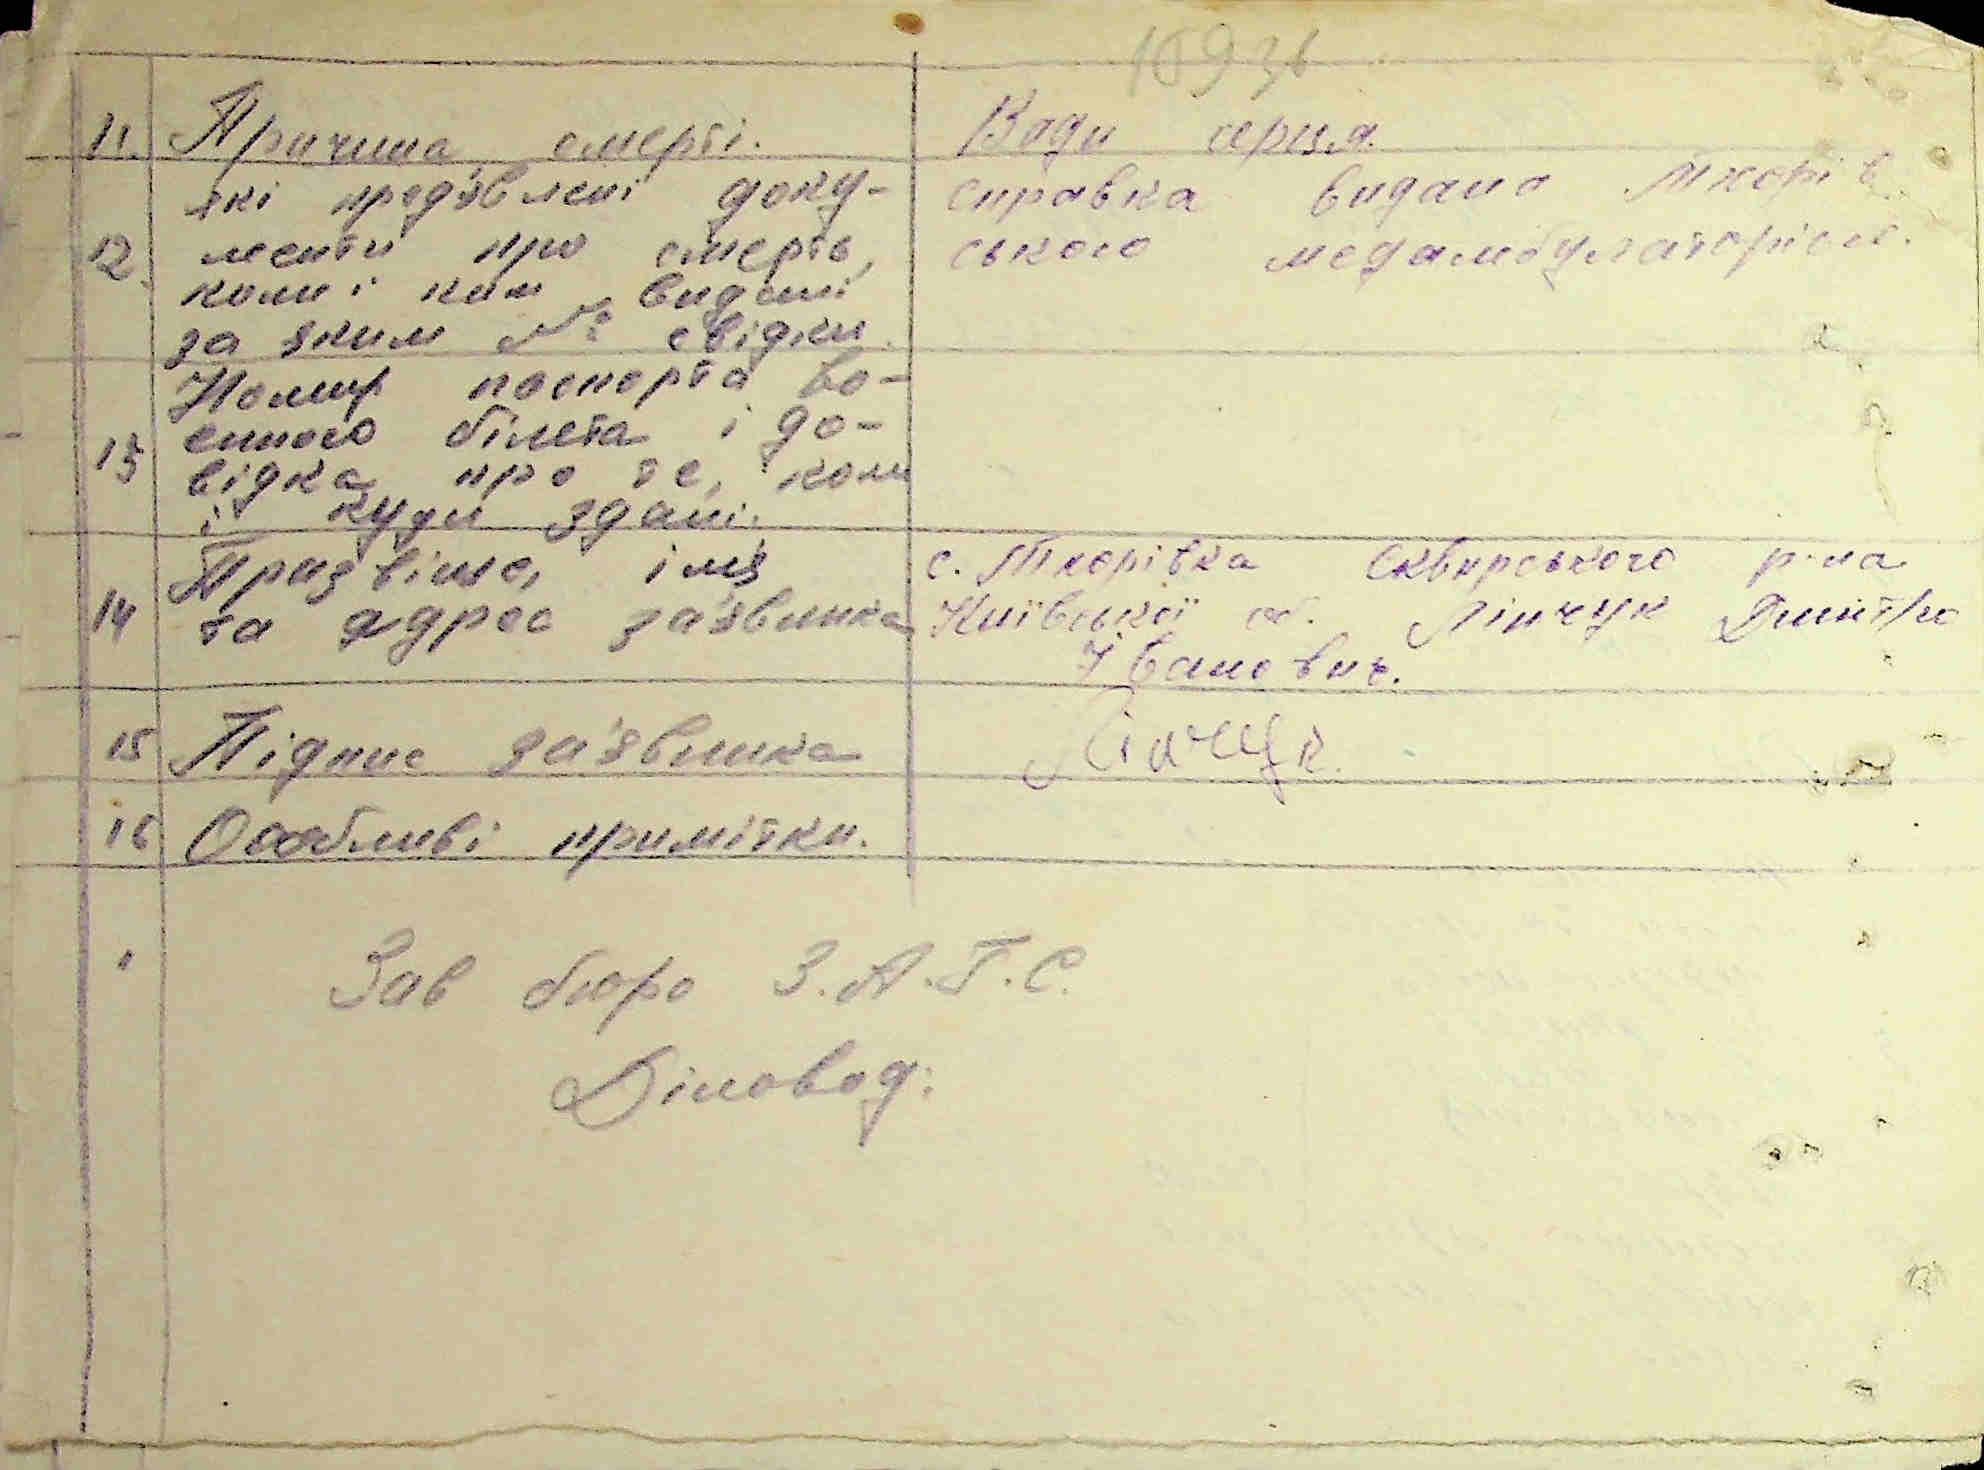 169 зв
11. Причина смерті. Вади серця.
які предявлені доку- справка видана Тхорів
12. менти про смерть, ського медамбулаторією.
коли і ким видані
за яким № свідки.
Номир паспорта во-
енного білета і до-
13 відка про те, коли
і куди здані.
Призвіще, імя с. Тхорівка Сквирського р-на
14 та адрес заявника Київської об. Лінчук Дмитро
Іванович.
15 Підпис заявника Лінчук.
16 Особливі примітки.
Зав бюро З.А.Г.С.
Діловод: